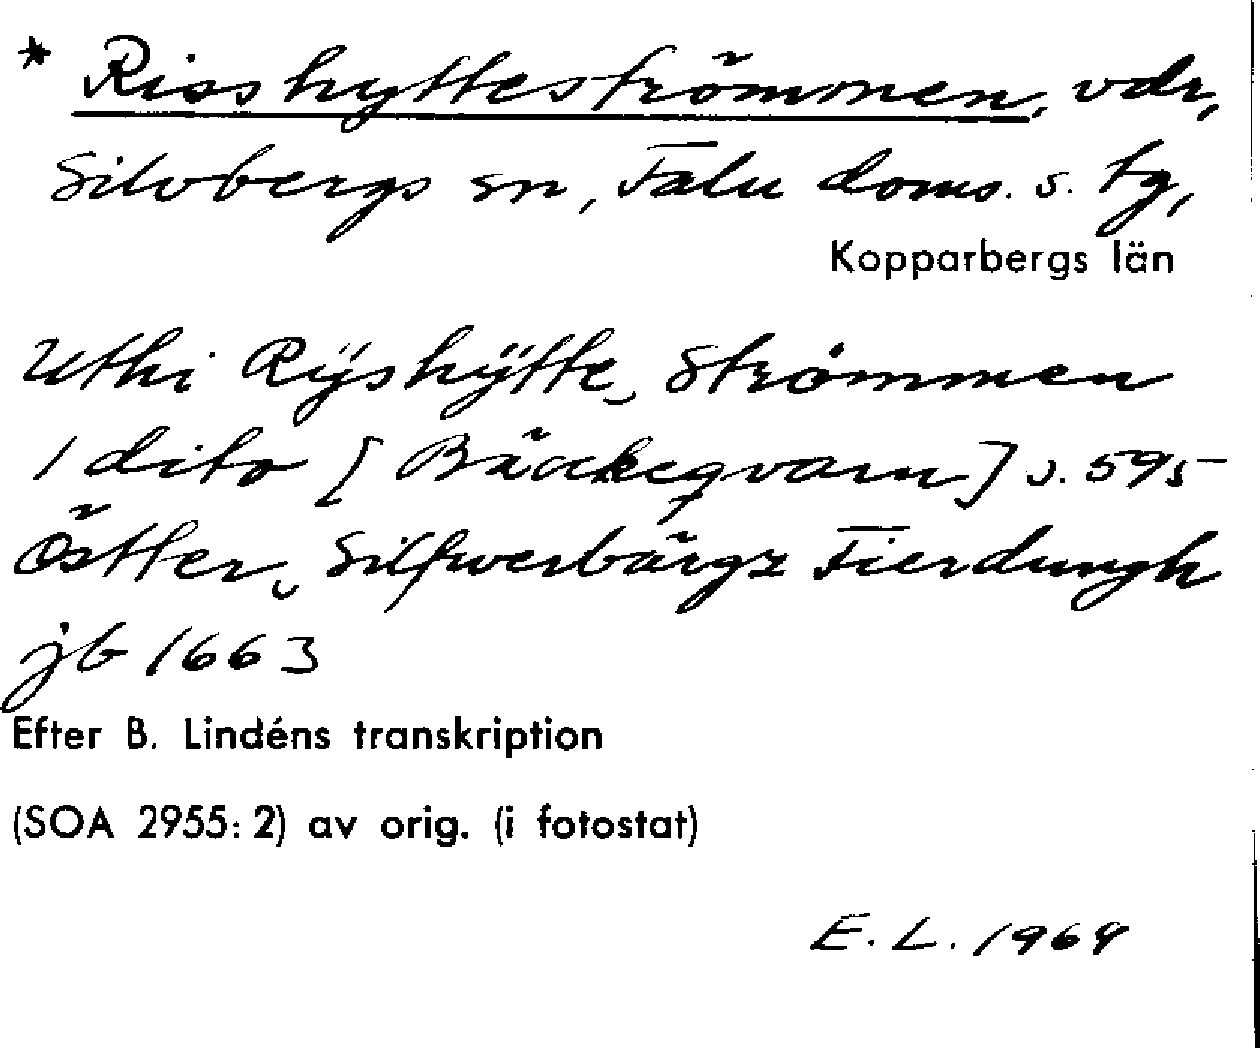 * Risshytteströmmen, vdr,
Silvbergs sn, Falu doms. s. tg,
Kopparbergs län
Uthi Rÿshÿtte Strömmen
1 dito [Bäackeqvarn] s. 595
Östter Silfwerbärgz Fierdungh
jb 1663
Efter B. Lindéns transkription
(SOA 2955:2) av orig. (i fotostat)
E. L. 1969